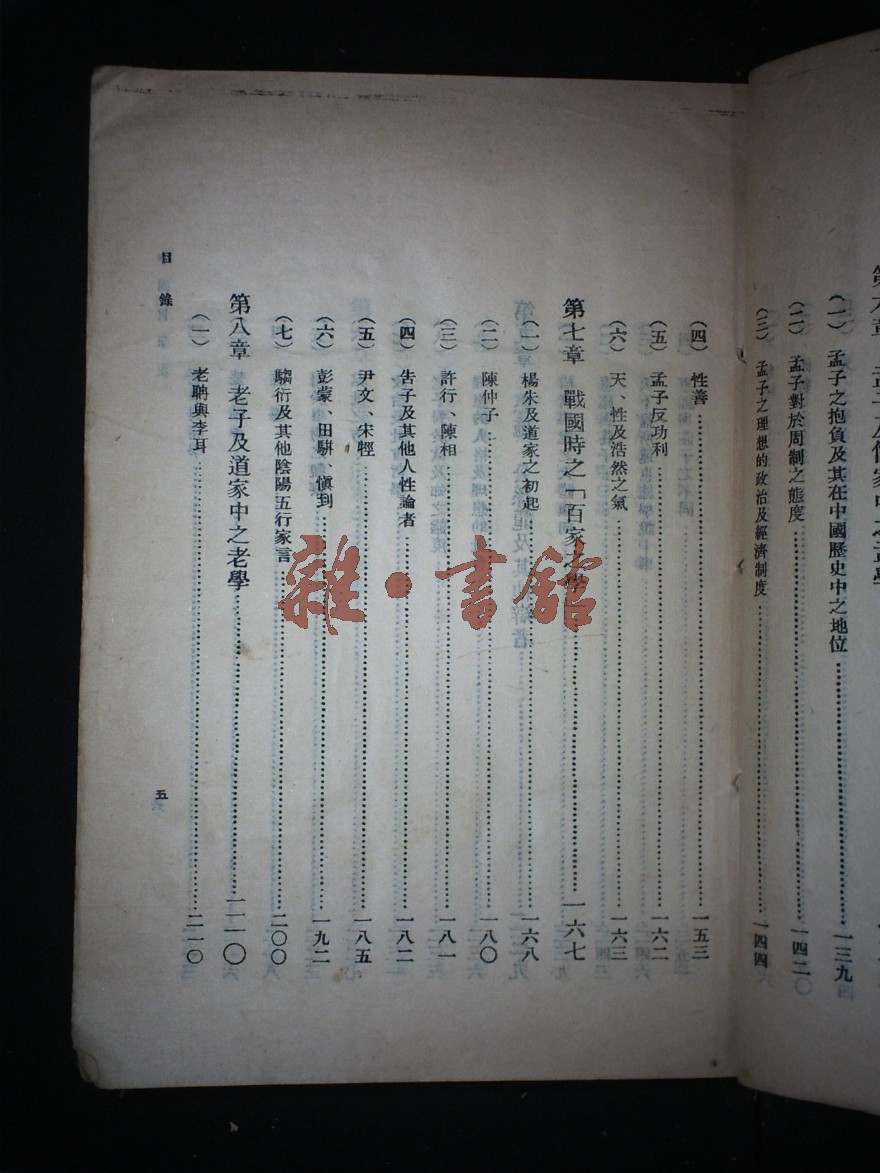 （一） 孟子之抱負及其在中國歷史中之地位……一三九
（二） 孟子對於周制之態度……一四二
（三） 孟子之理想的政治及經濟制度……一四四
（四） 性善……一五三
（五） 孟子反功利……一六二
（六） 天、性及浩然之氣……一六三
第七章 戰國時之「百家之學」……一六七
（一） 楊朱及道家之初起……一六八
（二） 陳仲子……一八〇
（三） 許行、陳相……一八一
（四） 告子及其他人性論者……一八二
（五） 尹文、宋牼……一八五
（六） 彭蒙、田駢、愼到……一九二
（七） 騶衍及其他陰陽五行家言……二〇〇
第八章 老子及道家中之老學……二一〇
（一） 老聃與李耳……二一〇
目錄
五
雜·書館